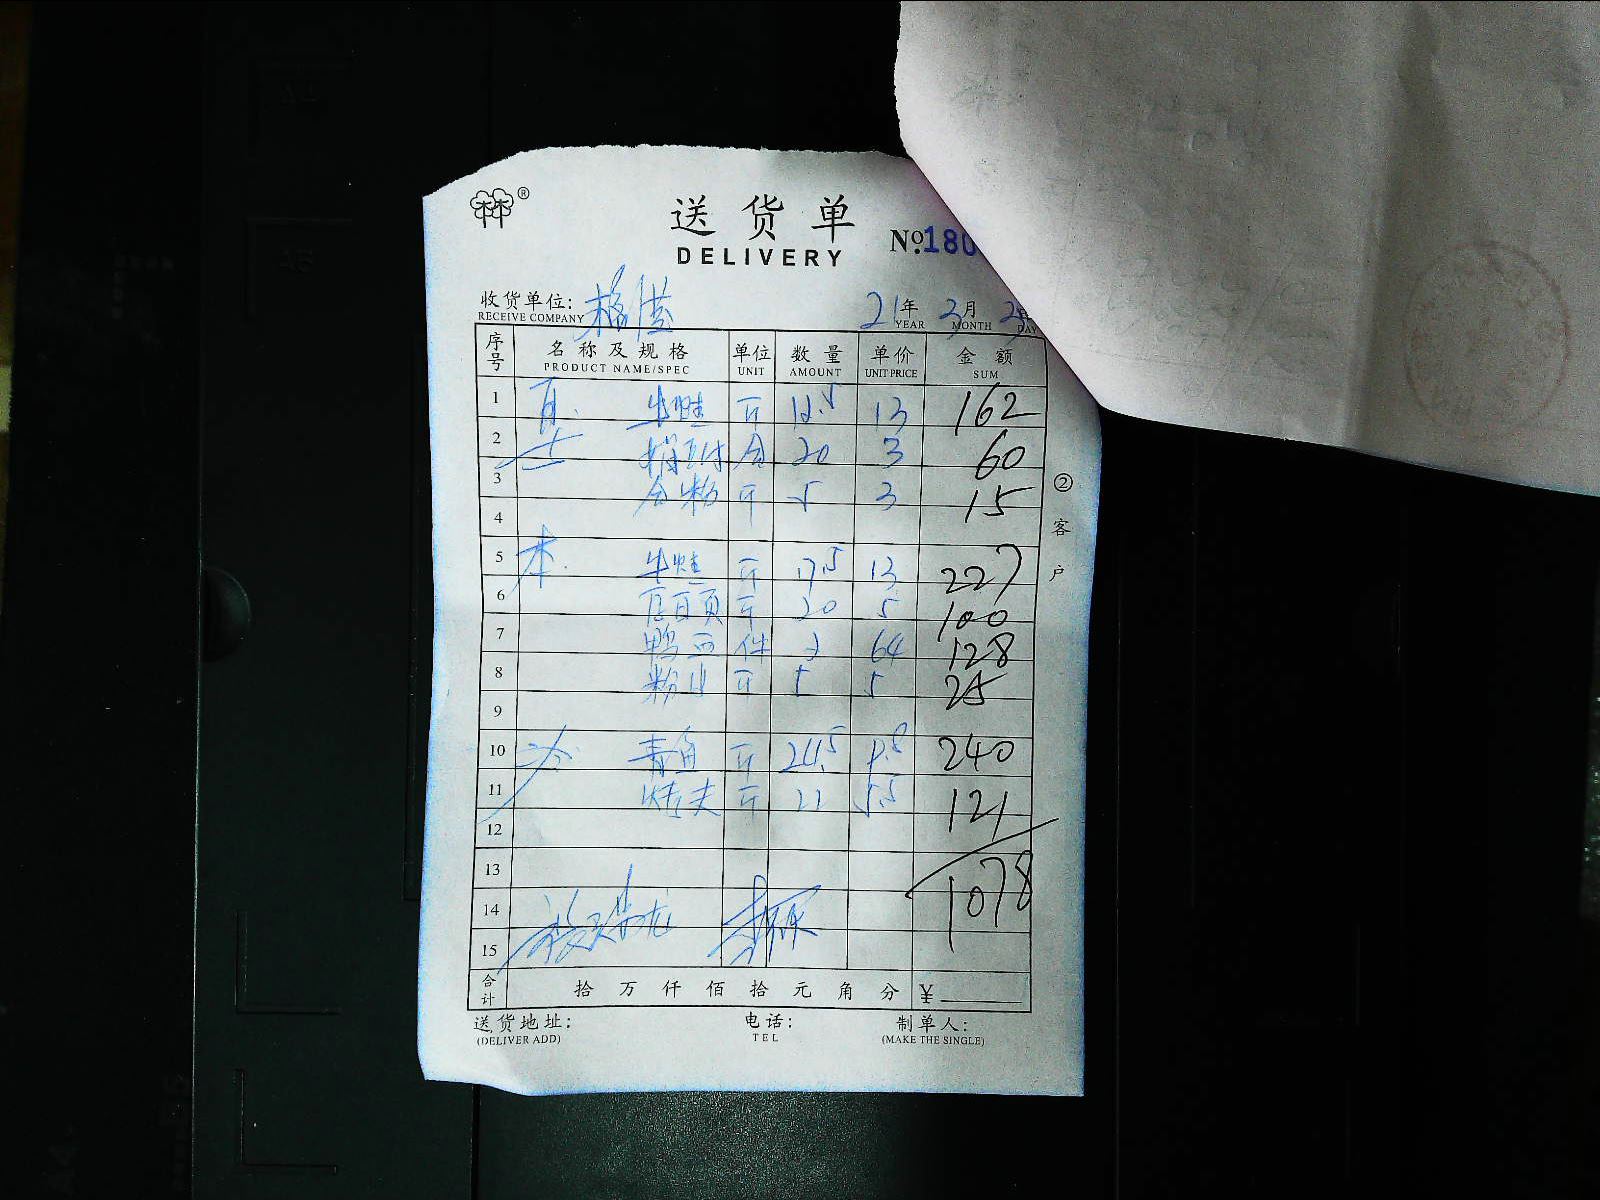 ®
送货单
DELIVERY
№180
收货单位:
RECEIVE COMPANY
21年 3月
YEAR MONTH DAY
序号 名称及规格 单位 数量 单价 金额
PRODUCT NAME/SPEC UNIT AMOUNT UNIT PRICE SUM
1 牛蛙 斤 12.5 13 162
2 合 20 3 60
3 斤 5 3 15
4
5 本. 牛蛙 斤 17.5 13 227
6 百页 斤 20 5 100
7 鸭 件 2 64 128
8 粉 斤 5 5 25
9
10 冷. 青鱼 斤 24.5 9.8 240
11 烤夫 斤 22 5.5 121
12
13 1078
14
15
合计 拾万仟佰拾元角分 ¥
送货地址: 电话: 制单人:
(DELIVER ADD) TEL (MAKE THE SINGLE)
②客户